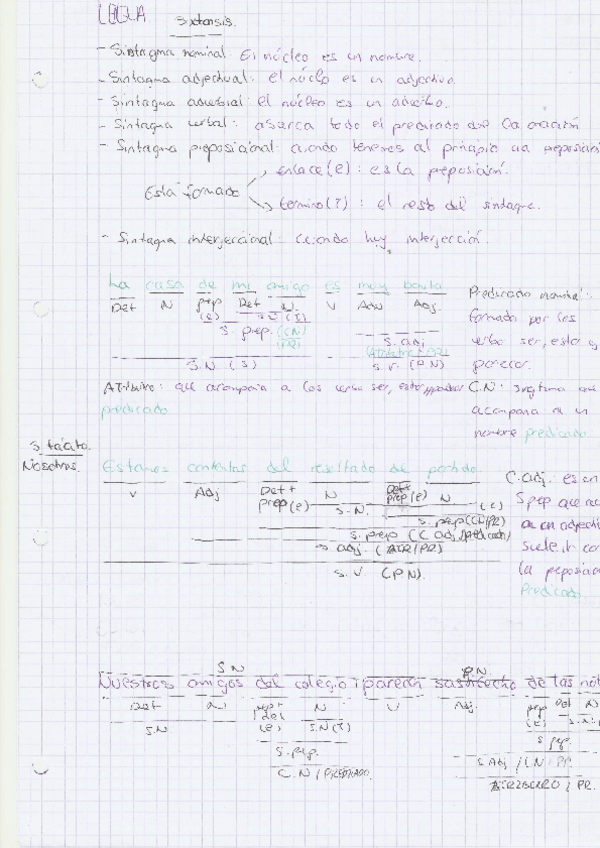 LENGUA
Sintaxis.
- Sintagma nominal: El núcleo es un nombre.
- Sintagma adjetival: el núcleo es un adjetivo.
- Sintagma adverbial: el núcleo es un adverbio.
- Sintagma verbal: abarca todo el predicado de la oración
- Sintagma preposicional: cuando tenemos al principio una preposición
enlace (e): es la preposición.
Está formado
término (T): el resto del sintagma.
- Sintagma interjeccional: cuando hay interjección.
La casa de mi amigo es muy bonita
Det N prep Det N V Adv Adj.
(e) S.N (T)
S. prep. (CN) S. adj
(PR) (Atributo/PR)
S.N (S) S.V. (P.N)
Predicado nominal:
formado por los
verbo ser, estar y
parecer.
Atributo: que acompaña a los verbo ser, estar, parecer
predicado
C.N: sintagma que
acompaña a un
nombre predicado
S. tácito.
Nosotros.
Estamos contentos del resultado de partido
V Adj Det+ N Det+ N
prep(e) prep(e)
S.N. (t)
S. prep (CN/PR)
S. prep (C adj/predicado)
S. adj. (ATR/PR)
S.V (P.N).
C. adj. es un
S prep que
a un adjetivo
suele ir con
la preposición
Predicado
S.N P.N
Nuestros amigos del colegio parecen satisfecho de las not
Det N prep+ N V Adj. prep Det N
det
S.N (e) S.N(T) (e) S.N
S. prep. S prep
C.N / PREDICADO. S Adj / C.N PR
ATRIBUTO / PR.